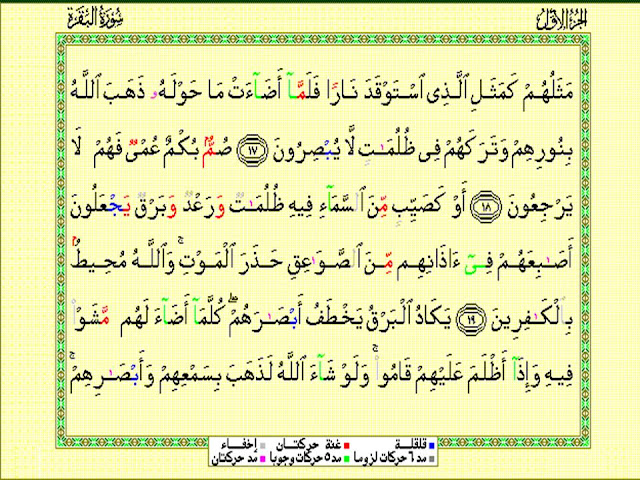 الجزء الأول
سورة البقرة
مَثَلُهُمْ كَمَثَلِ ٱلَّذِى ٱسْتَوْقَدَ نَارًا فَلَمَّآ أَضَآءَتْ مَا حَوْلَهُۥ ذَهَبَ ٱللَّهُ
بِنُورِهِمْ وَتَرَكَهُمْ فِى ظُلُمَـٰتٍ لَّا يُبْصِرُونَ ١٧ صُمٌّۢ بُكْمٌ عُمْىٌ فَهُمْ لَا
يَرْجِعُونَ ١٨ أَوْ كَصَيِّبٍ مِّنَ ٱلسَّمَآءِ فِيهِ ظُلُمَـٰتٌ وَرَعْدٌ وَبَرْقٌ يَجْعَلُونَ
أَصَـٰبِعَهُمْ فِىٓ ءَاذَانِهِم مِّنَ ٱلصَّوَٰعِقِ حَذَرَ ٱلْمَوْتِ ۚ وَٱللَّهُ مُحِيطٌۢ
بِٱلْكَـٰفِرِينَ ١٩ يَكَادُ ٱلْبَرْقُ يَخْطَفُ أَبْصَـٰرَهُمْ ۖ كُلَّمَآ أَضَآءَ لَهُم مَّشَوْا۟
فِيهِ وَإِذَآ أَظْلَمَ عَلَيْهِمْ قَامُوا۟ ۚ وَلَوْ شَآءَ ٱللَّهُ لَذَهَبَ بِسَمْعِهِمْ وَأَبْصَـٰرِهِمْ ۚ
قلقلة غنة حركتان إخفاء
مد ٦ حركات لزوما مد ٥ حركات وجوبا مد حركتان